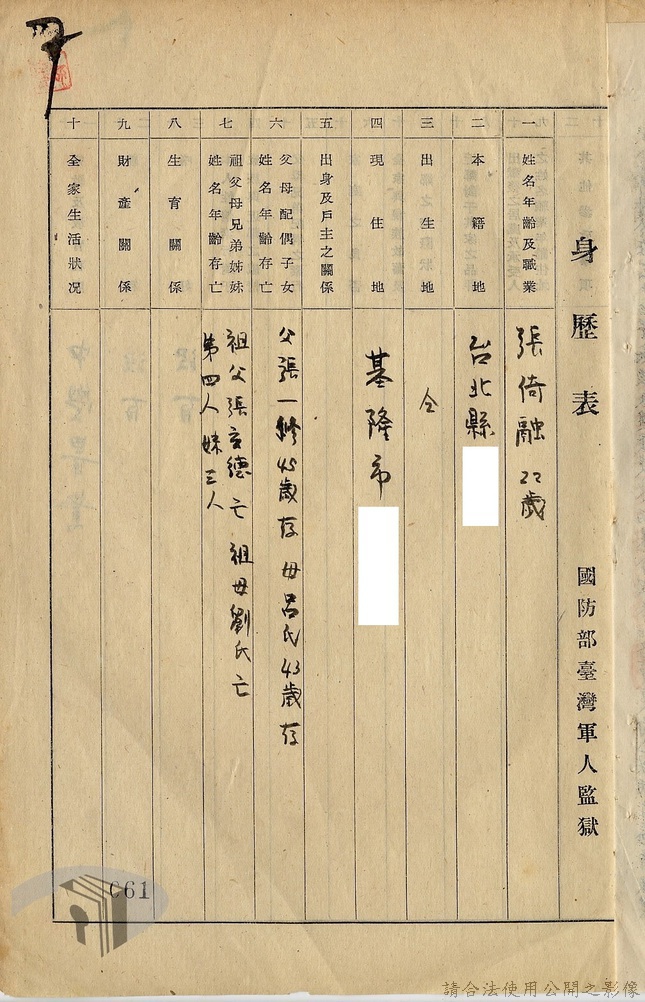 身歷表 國防部臺灣軍人監獄
一 姓名年齡及職業 張倚融 22歲
二 本籍地 台北縣
三 出生地 仝
四 現住地 基隆市
五 出身及戶主之關係
六 父母配偶子女姓名年齡存亡 父張一修 45歲存 母呂氏 43歲存
七 祖父母兄弟姊妹姓名年齡存亡 祖父張文德亡 祖母劉氏亡
第四人 妹三人
八 生育關係
九 財產關係
十 全家生活狀况
061
請合法使用公開之影像